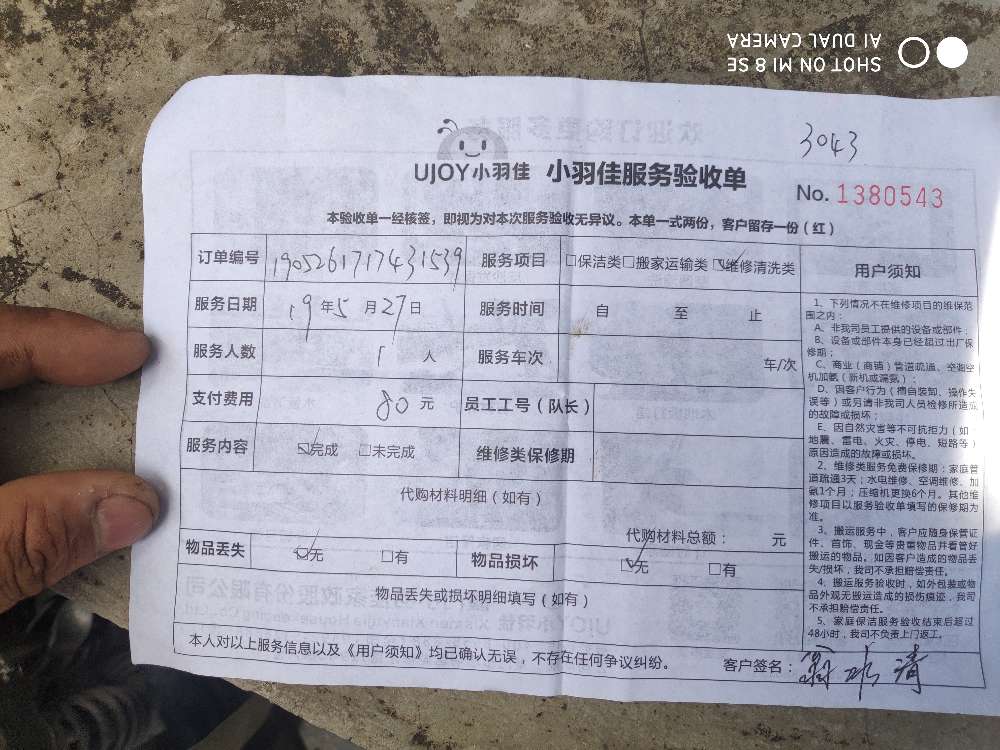 SHOT ON MI 8 SE
AI DUAL CAMERA
3043
UJOY小羽佳 小羽佳服务验收单
No. 1380543
本验收单一经核签，即视为对本次服务验收无异议。本单一式两份，客户留存一份（红）
订单编号 190526171743153​9 服务项目 □保洁类□搬家运输类☑维修清洗类
服务日期 19年5月27日 服务时间 自 至 止
服务人数 1人 服务车次 车/次
支付费用 80元 员工工号（队长）
服务内容 ☑完成 □未完成 维修类保修期
代购材料明细（如有）
代购材料总额： 元
物品丢失 ☑无 □有 物品损坏 ☑无 □有
物品丢失或损坏明细填写（如有）
本人对以上服务信息以及《用户须知》均已确认无误，不存在任何争议纠纷。 客户签名：
用户须知
1、下列情况不在维修项目的维保范
围之内：
A、非我司员工提供的设备或部件；
B、设备或部件本身已经超过出厂保
修期；
C、商业（商铺）管道疏通、空调空
机加氨（新机或漏氨）；
D、因客户行为（擅自装卸、操作失
误等）或另请非我司人员检修所造成
的故障或损坏；
E、因自然灾害等不可抗拒力（如
地震、雷电、火灾、停电、短路等）
原因造成的故障或损坏。
2、维修类服务免费保修期：家庭管
道疏通3天；水电维修、空调维修、加
氨1个月；压缩机更换6个月。其他维
修项目以服务验收单填写的保修期为
准。
3、搬运服务中，客户应随身保管证
件、首饰、现金等贵重物品并看管好
搬运的物品。如因客户造成的物品丢
失/损坏，我司不承担赔偿责任。
4、搬运服务验收时，如外包装或物
品外观无搬运造成的损伤痕迹，我司
不承担赔偿责任。
5、家庭保洁服务验收结束后超过
48小时，我司不负责上门返工。